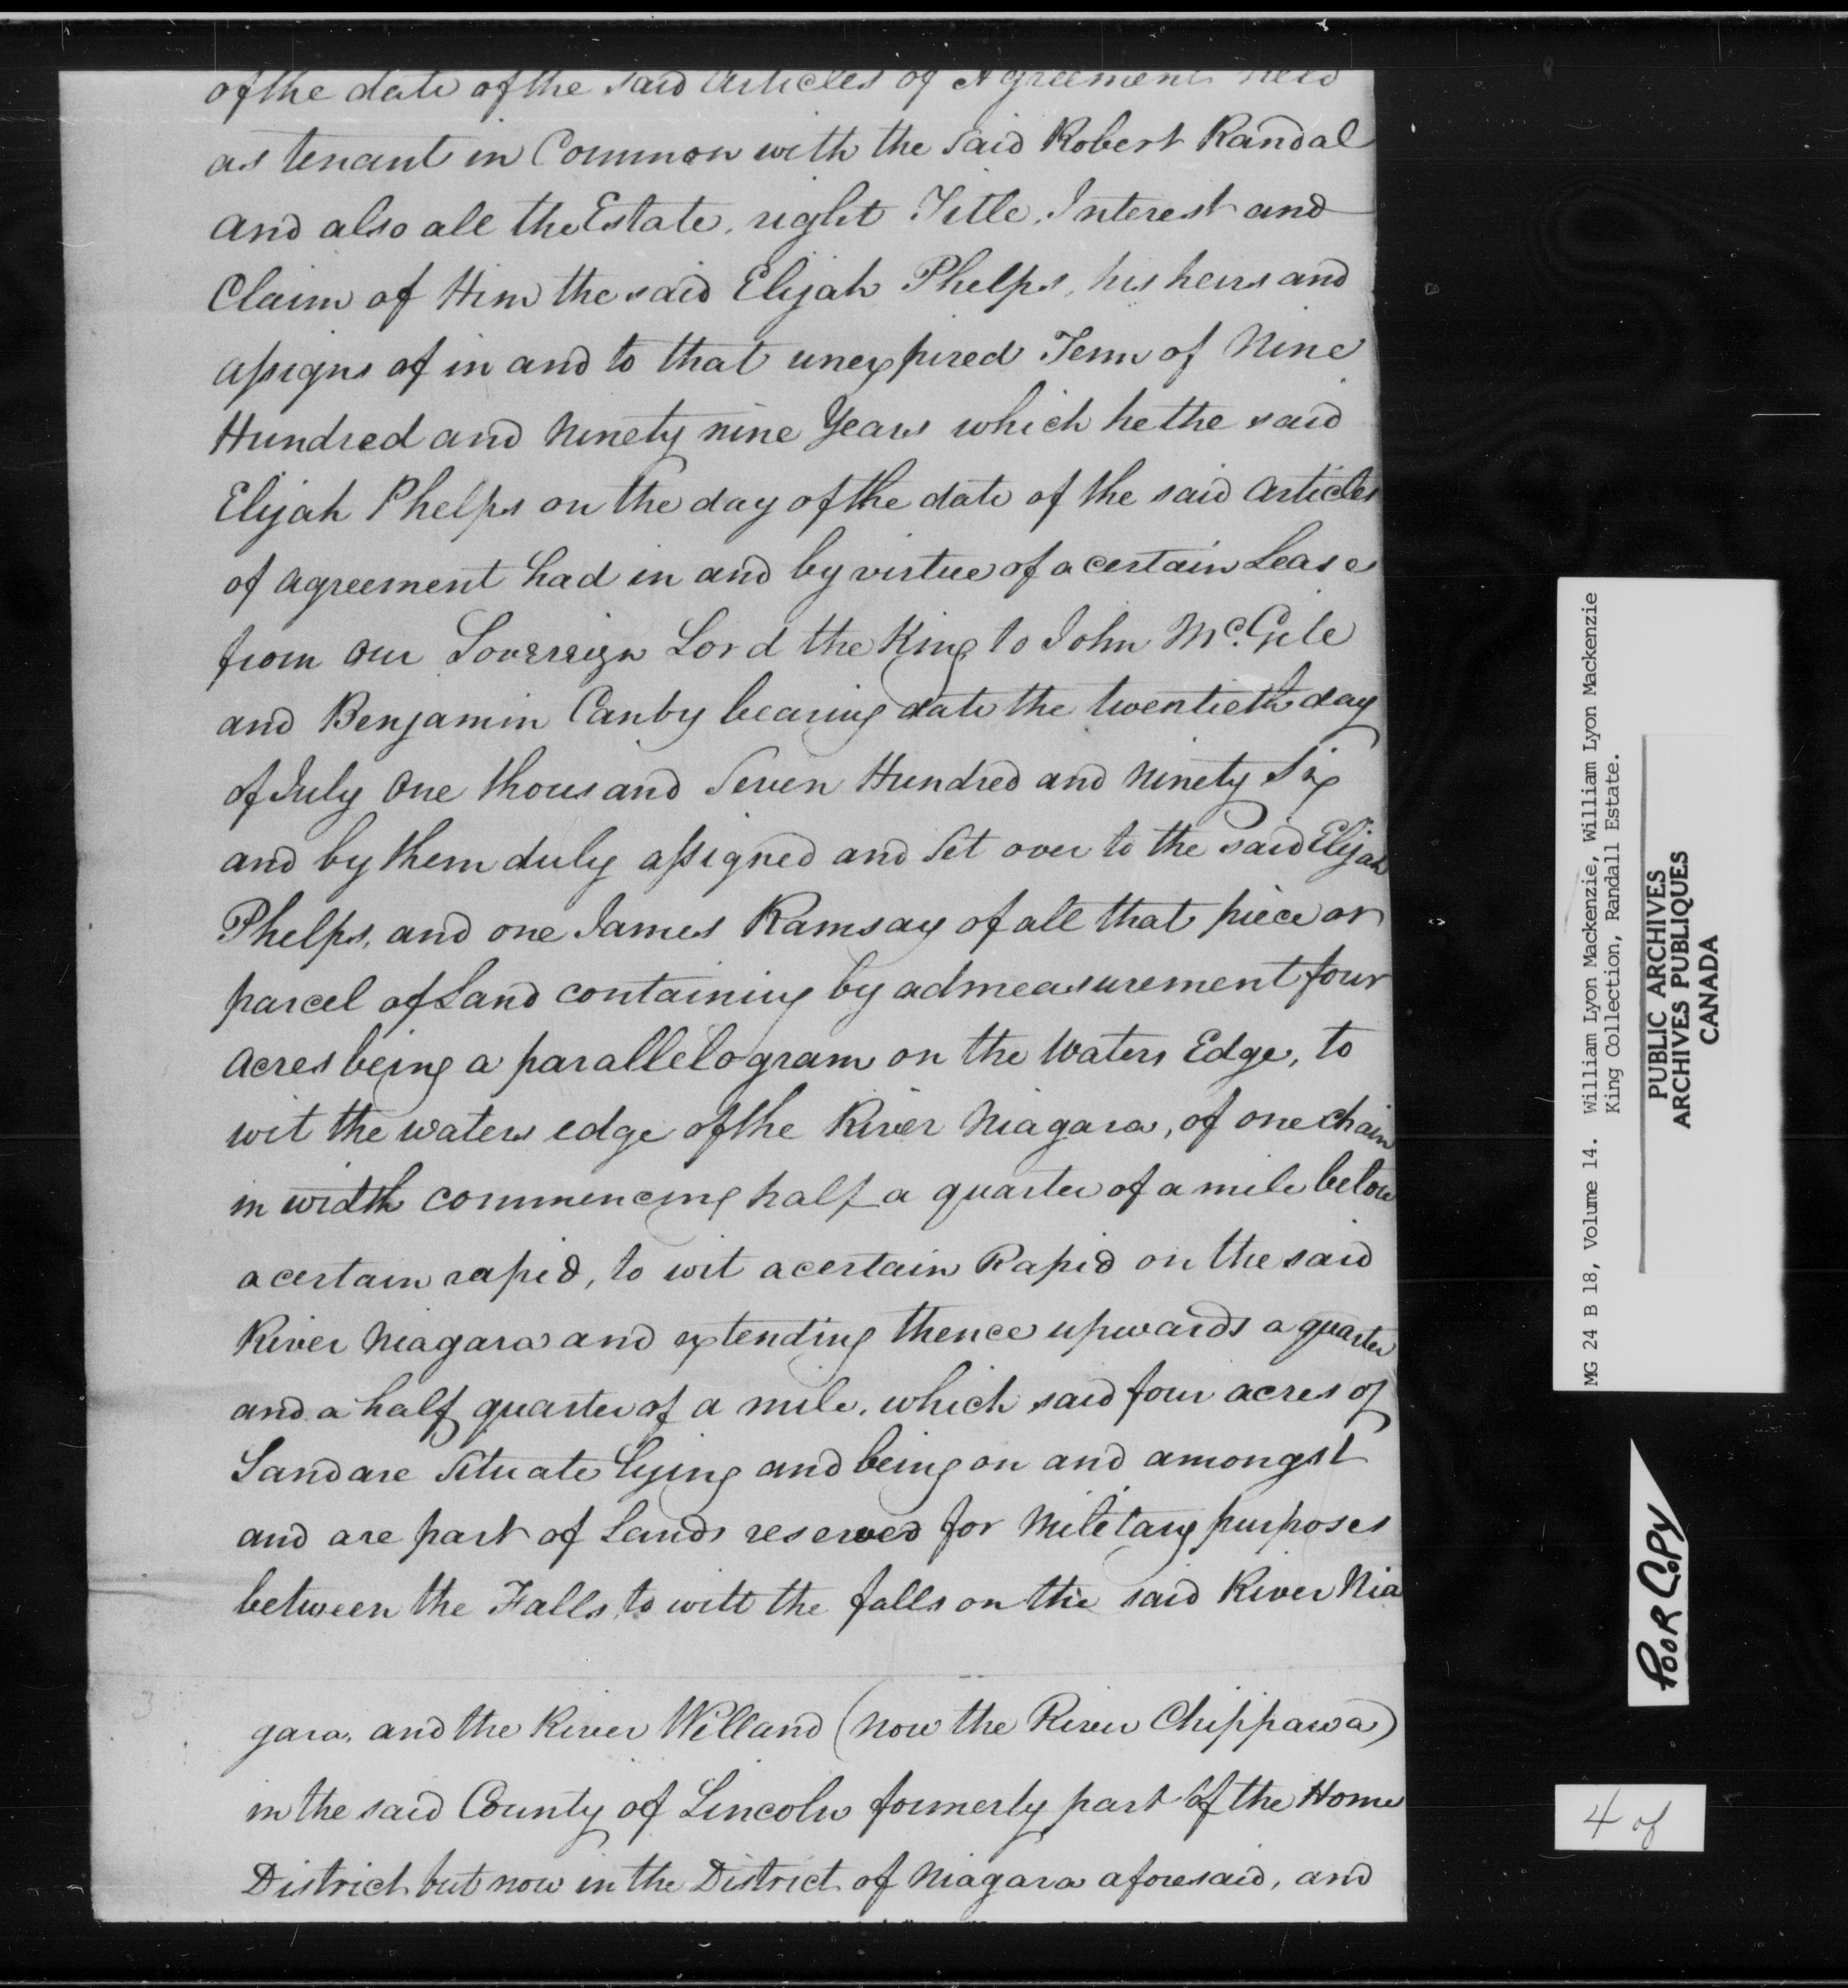 of the date of the said Articles of Agreement held
as tenant in Common with the said Robert Randal
and also all the Estate, right Title, Interest and
Claim of Him the said Elijah Phelps, his heirs and
assigns of in and to that unexpired Term of Nine
Hundred and Ninety nine Years which he the said
Elijah Phelps on the day of the date of the said Articles
of Agreement had in and by virtue of a certain Lease
from our Sovereign Lord the King to John McGile
and Benjamin Canby bearing date the twentieth day
of July One thousand Seven Hundred and Ninety Six
and by them duly assigned and Set over to the said Elijah
Phelps, and one James Ramsay of all that piece or
parcel of Land containing by admeasurement four
Acres being a parallelogram on the Waters Edge, to
wit the waters edge of the River Niagara, of one Chain
in width commencing half a quarter of a mile below
a certain rapid, to wit a certain Rapid on the said
River Niagara and extending thence upwards a quarter
and a half quarter of a mile, which said four acres of
Land are Situate lying and being on and amongst
and are part of Lands reserved for Military purposes
between the Falls, to witt the falls on the said River Nia
gara, and the River Welland (now the River Chippawa)
in the said County of Lincoln formerly part of the Home
District but now in the District of Niagara aforesaid, and
MG 24 B 18, Volume 14. William Lyon Mackenzie, William Lyon Mackenzie
King Collection, Randall Estate.
PUBLIC ARCHIVES
ARCHIVES PUBLIQUES
CANADA
POOR COPY
4 of